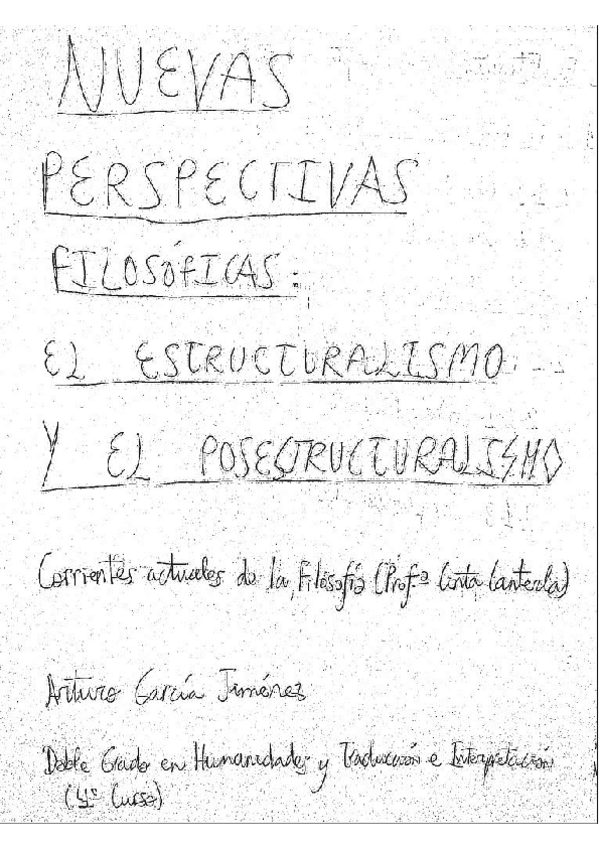 NUEVAS
PERSPECTIVAS
FILOSÓFICAS:
EL ESTRUCTURALISMO
Y EL POSESTRUCTURALISMO
Corrientes actuales de la Filosofía (Prof.ª Cinta Canterla)
Arturo García Jiménez
Doble Grado en Humanidades y Traducción e Interpretación
(4º Curso)